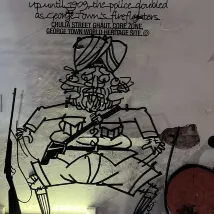 up until 1909, the police doubled
as George Town's firefighters.
CHULIA STREET GHAUT, CORE ZONE,
GEORGE TOWN WORLD HERITAGE SITE.